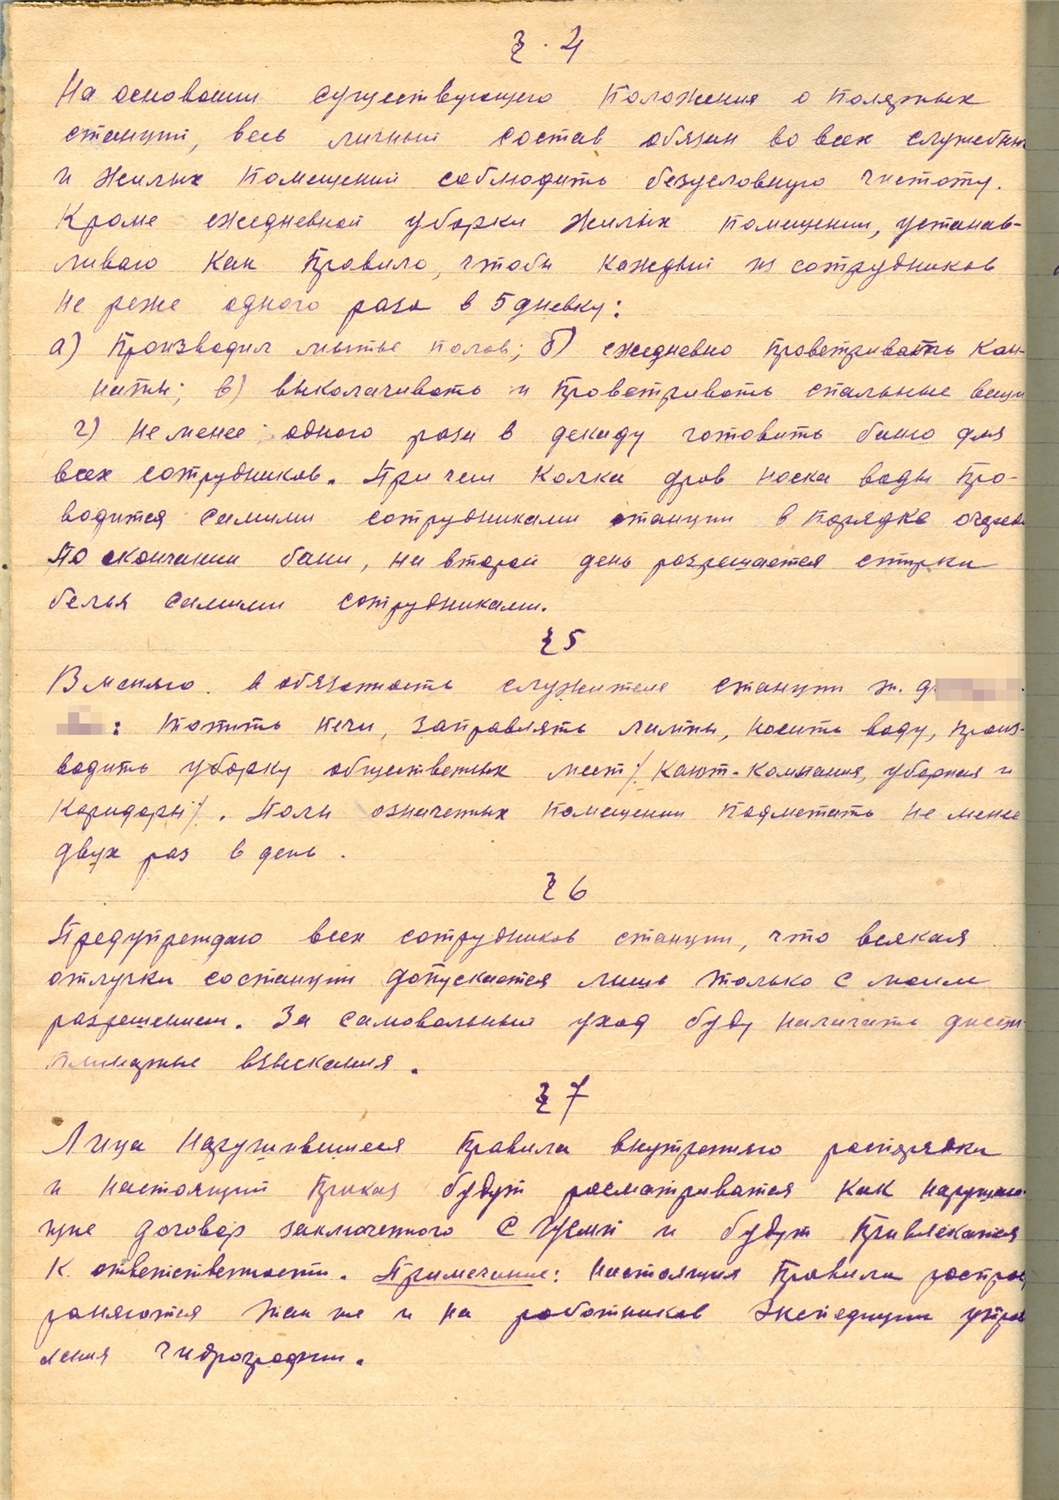 § . 4
На основании существующего Положения о Полярных
станции, весь личный состав обязан во всех служебны
и жилых Помещений соблюдить безусловную чистоту.
Кроме ежедневной уборки жилых помещении, устанав-
ливаю как Правило, чтобы каждый из сотрудников
не реже одного раза в 5 дневку:
а) Производил мытье полов; б) ежедневно проветривать Ком-
наты; в) выколачивать и Проветривать спальные вещи
г) Не менее одного раза в декаду готовить баню для
всех сотрудников. При чем Колка дров носка воды Про-
водится самими сотрудниками станции в Порядке очеред
По окончании бани, на второй день разрешается стирки
белья самими сотрудниками.
§ 5
Вменяю в обязанность служителе станции т.
: топить Печи, заправлять лампы, носить воду, Произ-
водить уборку общественных мест/ Кают-Компания, уборная и
Коридоры/. Полы означенных Помещении Подметать не менее
двух раз в день.
§ 6
Предупреждаю всех сотрудников станции, что всякая
отлучки состанции допускается лишь только с моим
разрешением. За самовольный уход буду налагать дисци-
плинарные взыскания.
§ 7
Лица Нарушившиеся Правила внутреннего распорядки
и настоящий Приказ будут расматриватся как нарушаю-
щие договор заключенного с ГУСМП и будут Привлекатся
к ответственности. Примечание: Настоящия Правила распрос
раняются так же и на работников Экспедиции управ
ления Гидрографии.